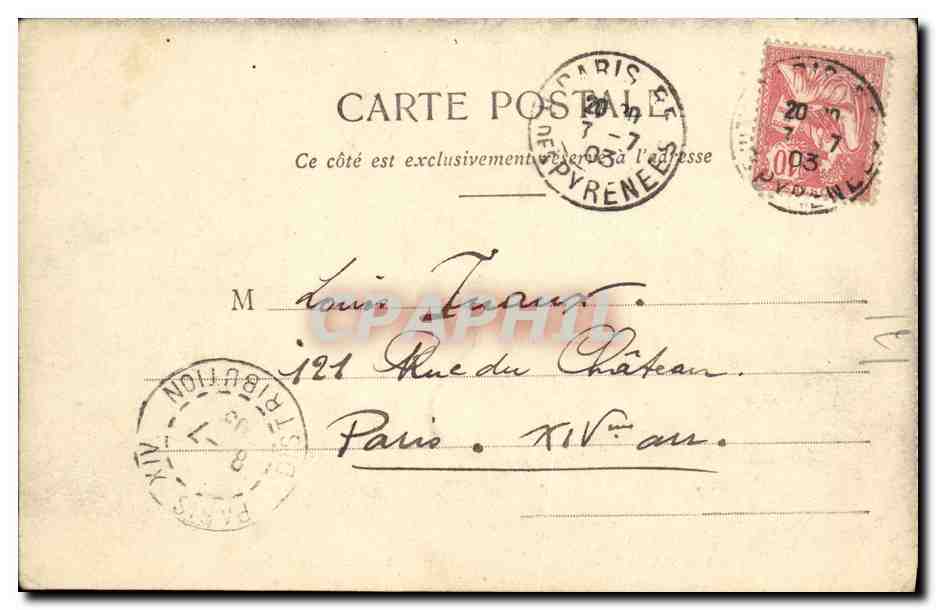 CARTE POSTALE
Ce côté est exclusivement réservé à l'adresse
PARIS
20
7 - 7
03
R. DES PYRENEES
20
7 7
03
PYRENEES
10
M Louis
CPAPHIL
121 Rue du Château.
Paris. XIVme arr.
121
PARIS XIV
DISTRIBUTION
8 - 7
03